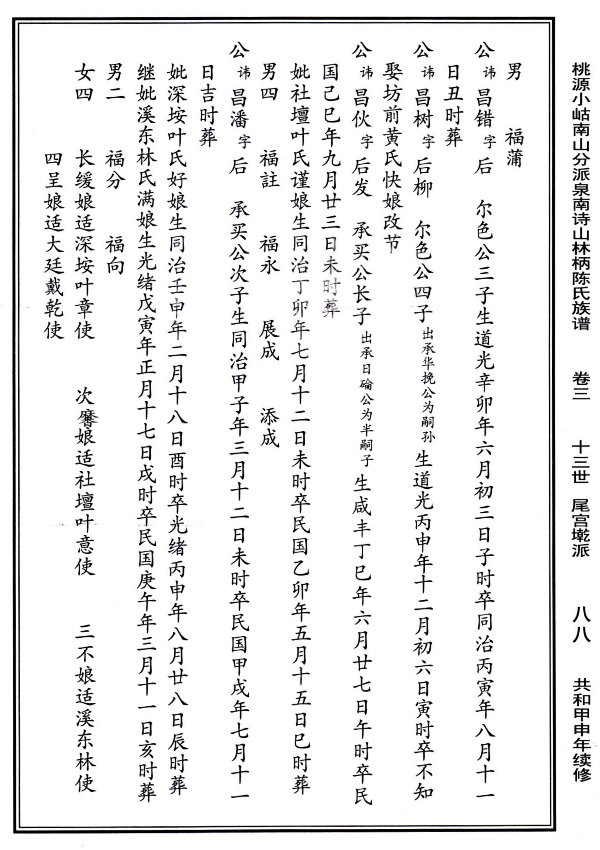 桃源小岵南山分派泉南诗山林柄陈氏族谱 卷三 十三世 尾宫墘派 八八 共和甲申年续修
男 福蒲
公 讳 昌错 字 后 尔色公三子生道光辛卯年六月初三日子时卒同治丙寅年八月十一
日丑时葬
公 讳 昌树 字 后柳 尔色公四子 出承华挽公为嗣孙 生道光丙申年十二月初六日寅时卒不知
娶坊前黄氏快娘改节
公 讳 昌伙 字 后发 承买公长子 出承日碖公为半嗣子 生咸丰丁巳年六月廿七日午时卒民
国己巳年九月廿三日未时葬
妣社壇叶氏谨娘生同治丁卯年七月十二日未时卒民国乙卯年五月十五日巳时葬
男四 福註 福永 展成 添成
公 讳 昌潘 字 后 承买公次子生同治甲子年三月十二日未时卒民国甲戌年七月十一
日吉时葬
妣深垵叶氏好娘生同治壬申年二月十八日酉时卒光绪丙申年八月廿八日辰时葬
继妣溪东林氏满娘生光绪戊寅年正月十七日戌时卒民国庚午年三月十一日亥时葬
男二 福分 福向
女四 长缓娘适深垵叶章使 次 娘适社壇叶意使 三不娘适溪东林使
四呈娘适大廷戴乾使